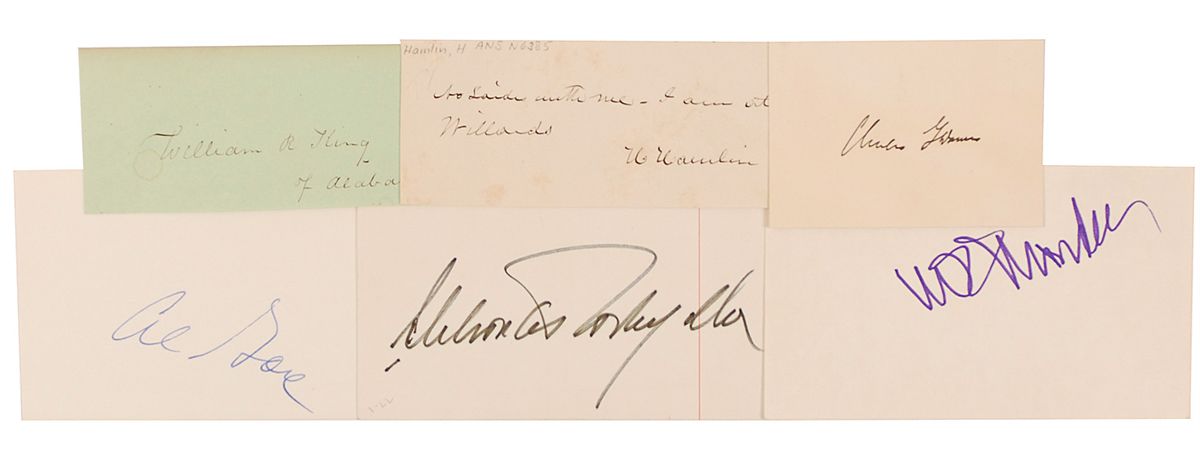 William R King
of Alaba
Hamlin, H ANS N6385
No Ladies with me - I am at
Willards
H Hamlin
Al Gore
Nelson A Rockefeller
1-22